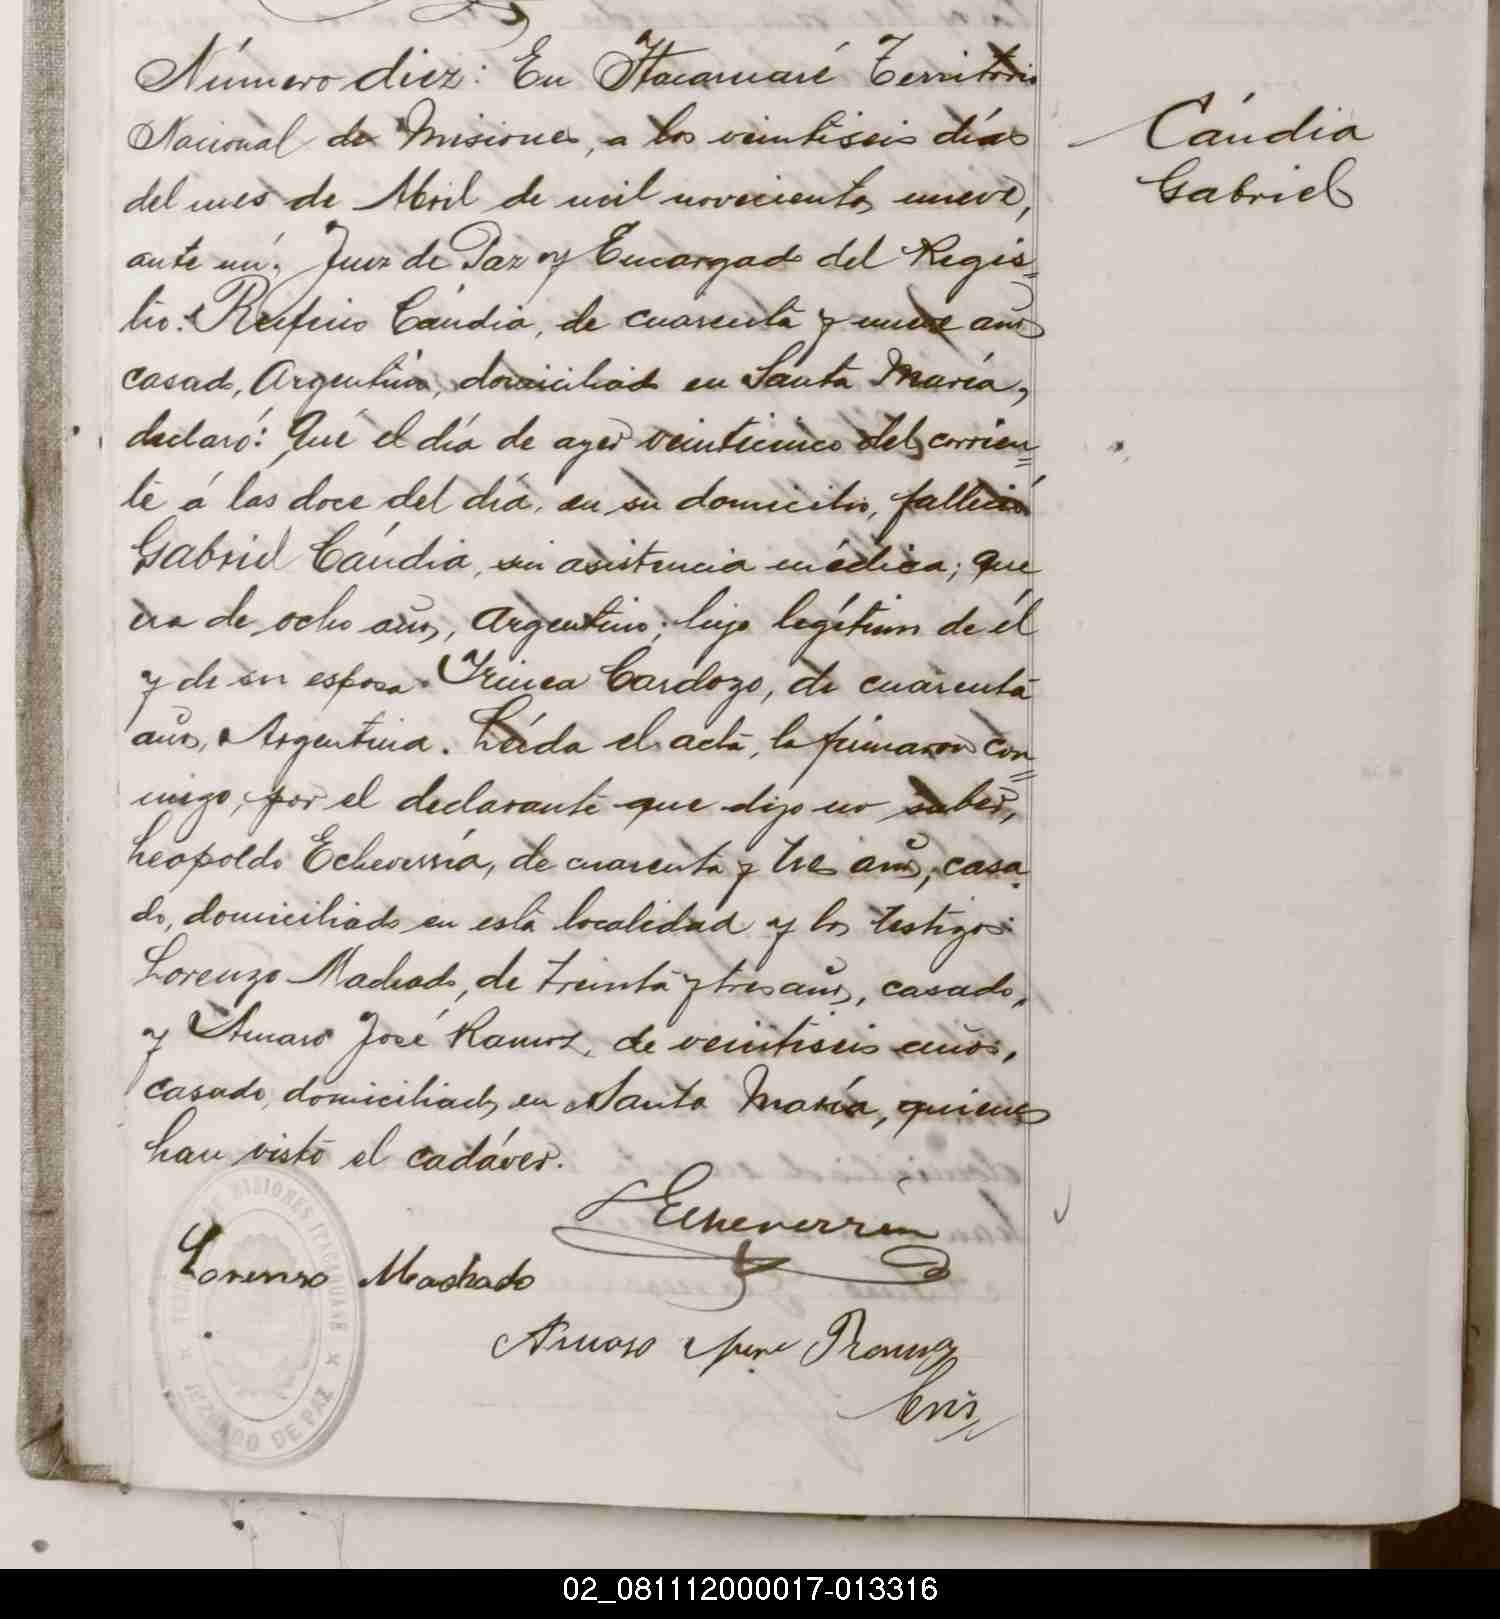 Número diez: En Itacaruaré Territorio
Nacional de Misiones, a los veintiseis días
del mes de Abril de mil novecientos nueve,
ante mí, Juez de Paz y Encargado del Regis=
tro: Rufino Cándia, de cuarenta y nueve años
casado, Argentino, domiciliado en Santa María,
declaró: Qué el día de ayer veinticinco del corrien=
te á las doce del día, en su domicilio, falleció
Gabriel Cándia, sin asistencia médica; que
era de ocho años, Argentino; hijo legítimo de él
y de su esposa Irinea Cardozo, de cuarenta
años, Argentina. Leída el acta, la firmaron con=
migo, por el declarante que dijo no saber,
Leopoldo Echeverría, de cuarenta y tres años, casa
do, domiciliado en esta localidad y los testigos
Lorenzo Machado, de treinta y tres años, casado,
y Amaro José Ramos, de veintiseis años,
casado, domiciliados en Santa María, quienes
han visto el cadáver.
LEcheverría
Lorenzo Machado
Amaro José Ramos
Cándia
Gabriel
MISIONES ITACARUARE
JUZGADO DE PAZ
02_081112000017-013316